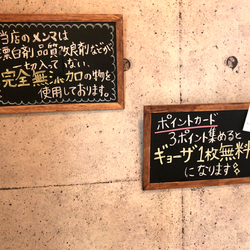 当店のメンマは
漂白剤、品質改良剤などが
一切入ってない、
完全無シャカロの物を
使用しております。
ポイントカード
3ポイント集めると
ギョーザ1枚無料
になります